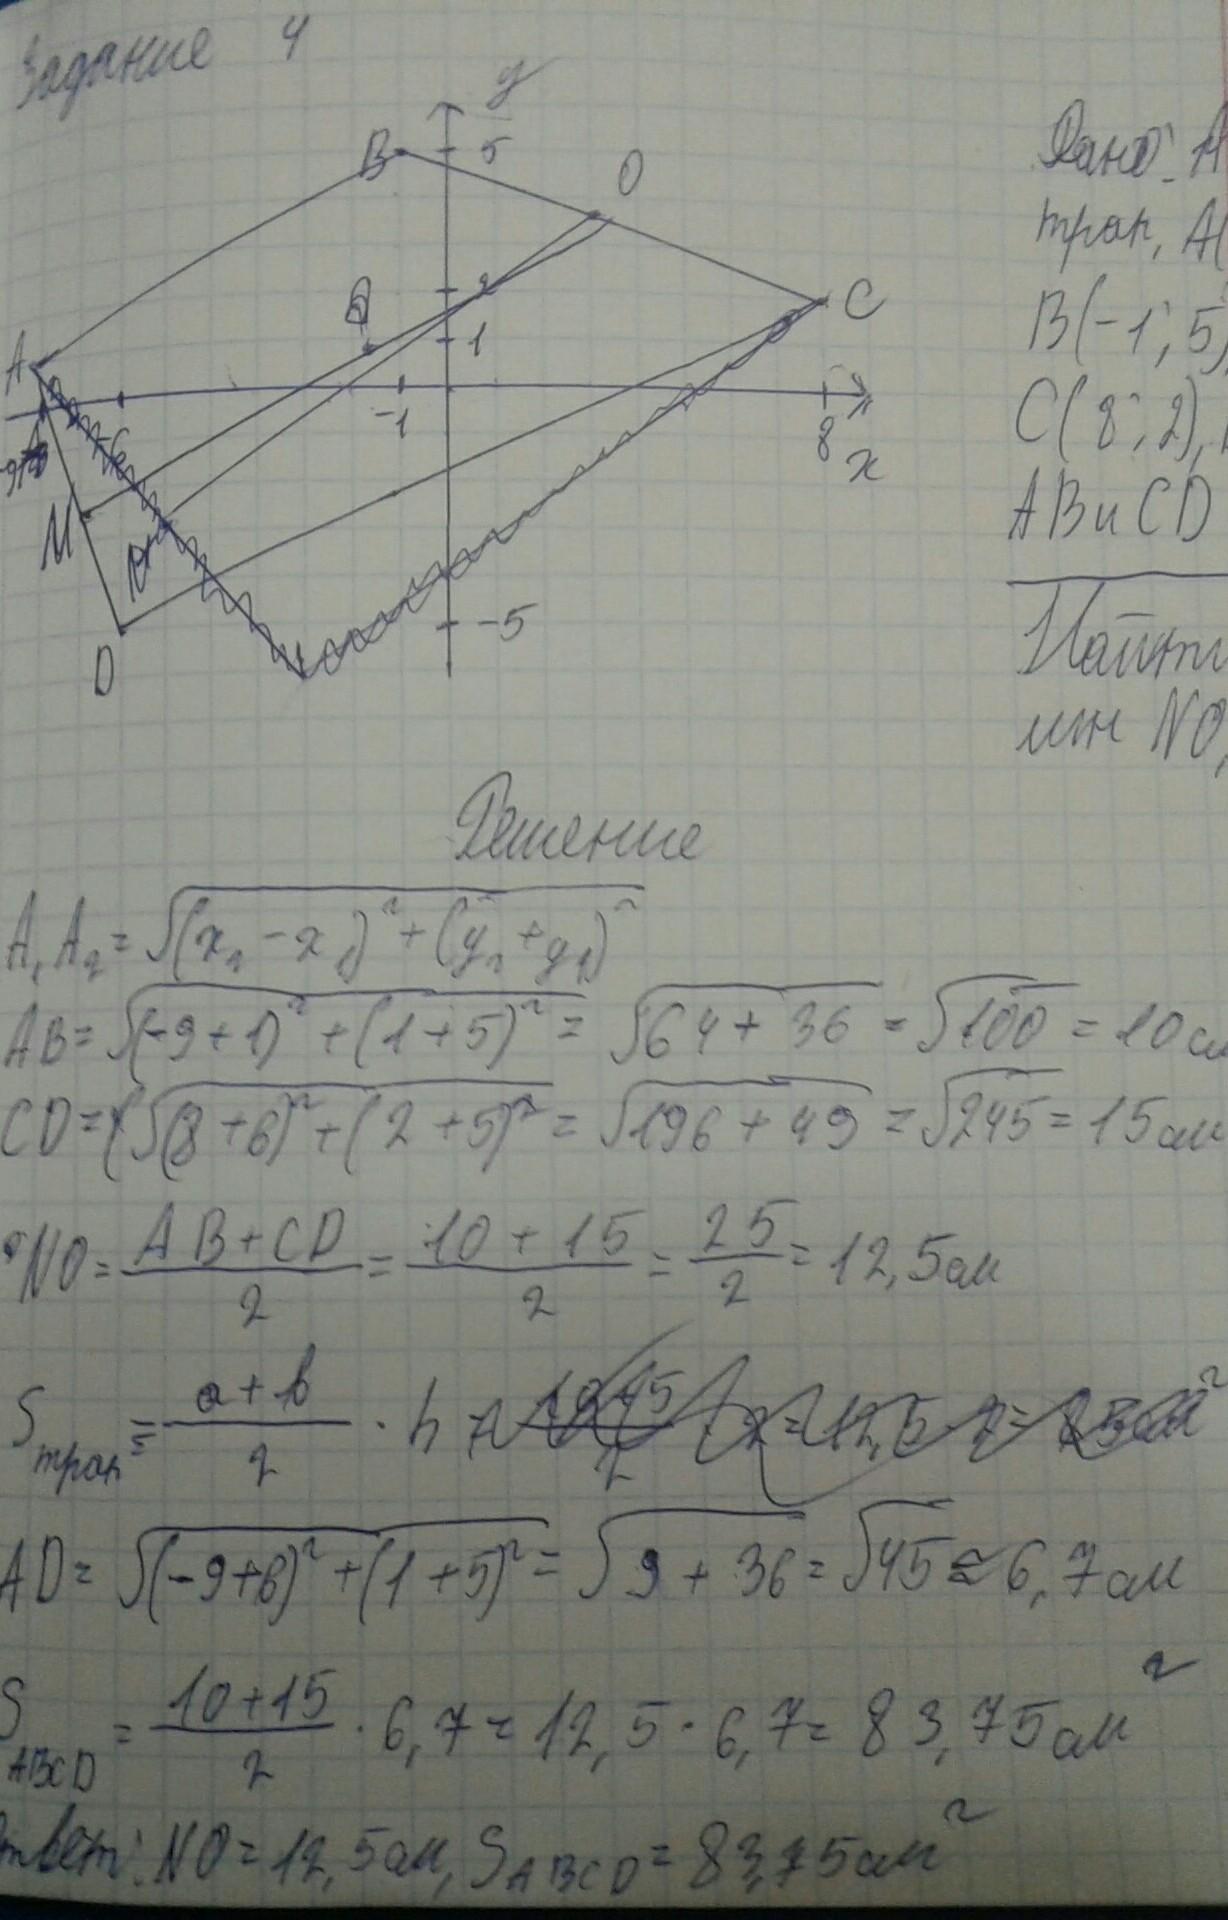 Задание 4
y
B
5
O
2
C
1
A
-1
8
x
-6
-9
M
D
-5
Дано: A
трап, A(
B(-1; 5)
C(8; 2),
AB и CD
Найти
лин NO,
Решение
A₁A₂ = √(x₂ - x₁)² + (y₂ + y₁)²
AB = √(-9+1)² + (1+5)² = √64 + 36 = √100 = 10 см
CD = √(8+6)² + (2+5)² = √196 + 49 = √245 = 15 см
NO = (AB + CD)/2 = (10 + 15)/2 = 25/2 = 12,5 см
Sтрап = (a + b)/2 · h
AD = √(-9+6)² + (1+5)² = √9 + 36 = √45 ≈ 6,7 см
S ABCD = (10+15)/2 · 6,7 = 12,5 · 6,7 = 83,75 см²
Ответ: NO = 12,5 см, S ABCD = 83,75 см²